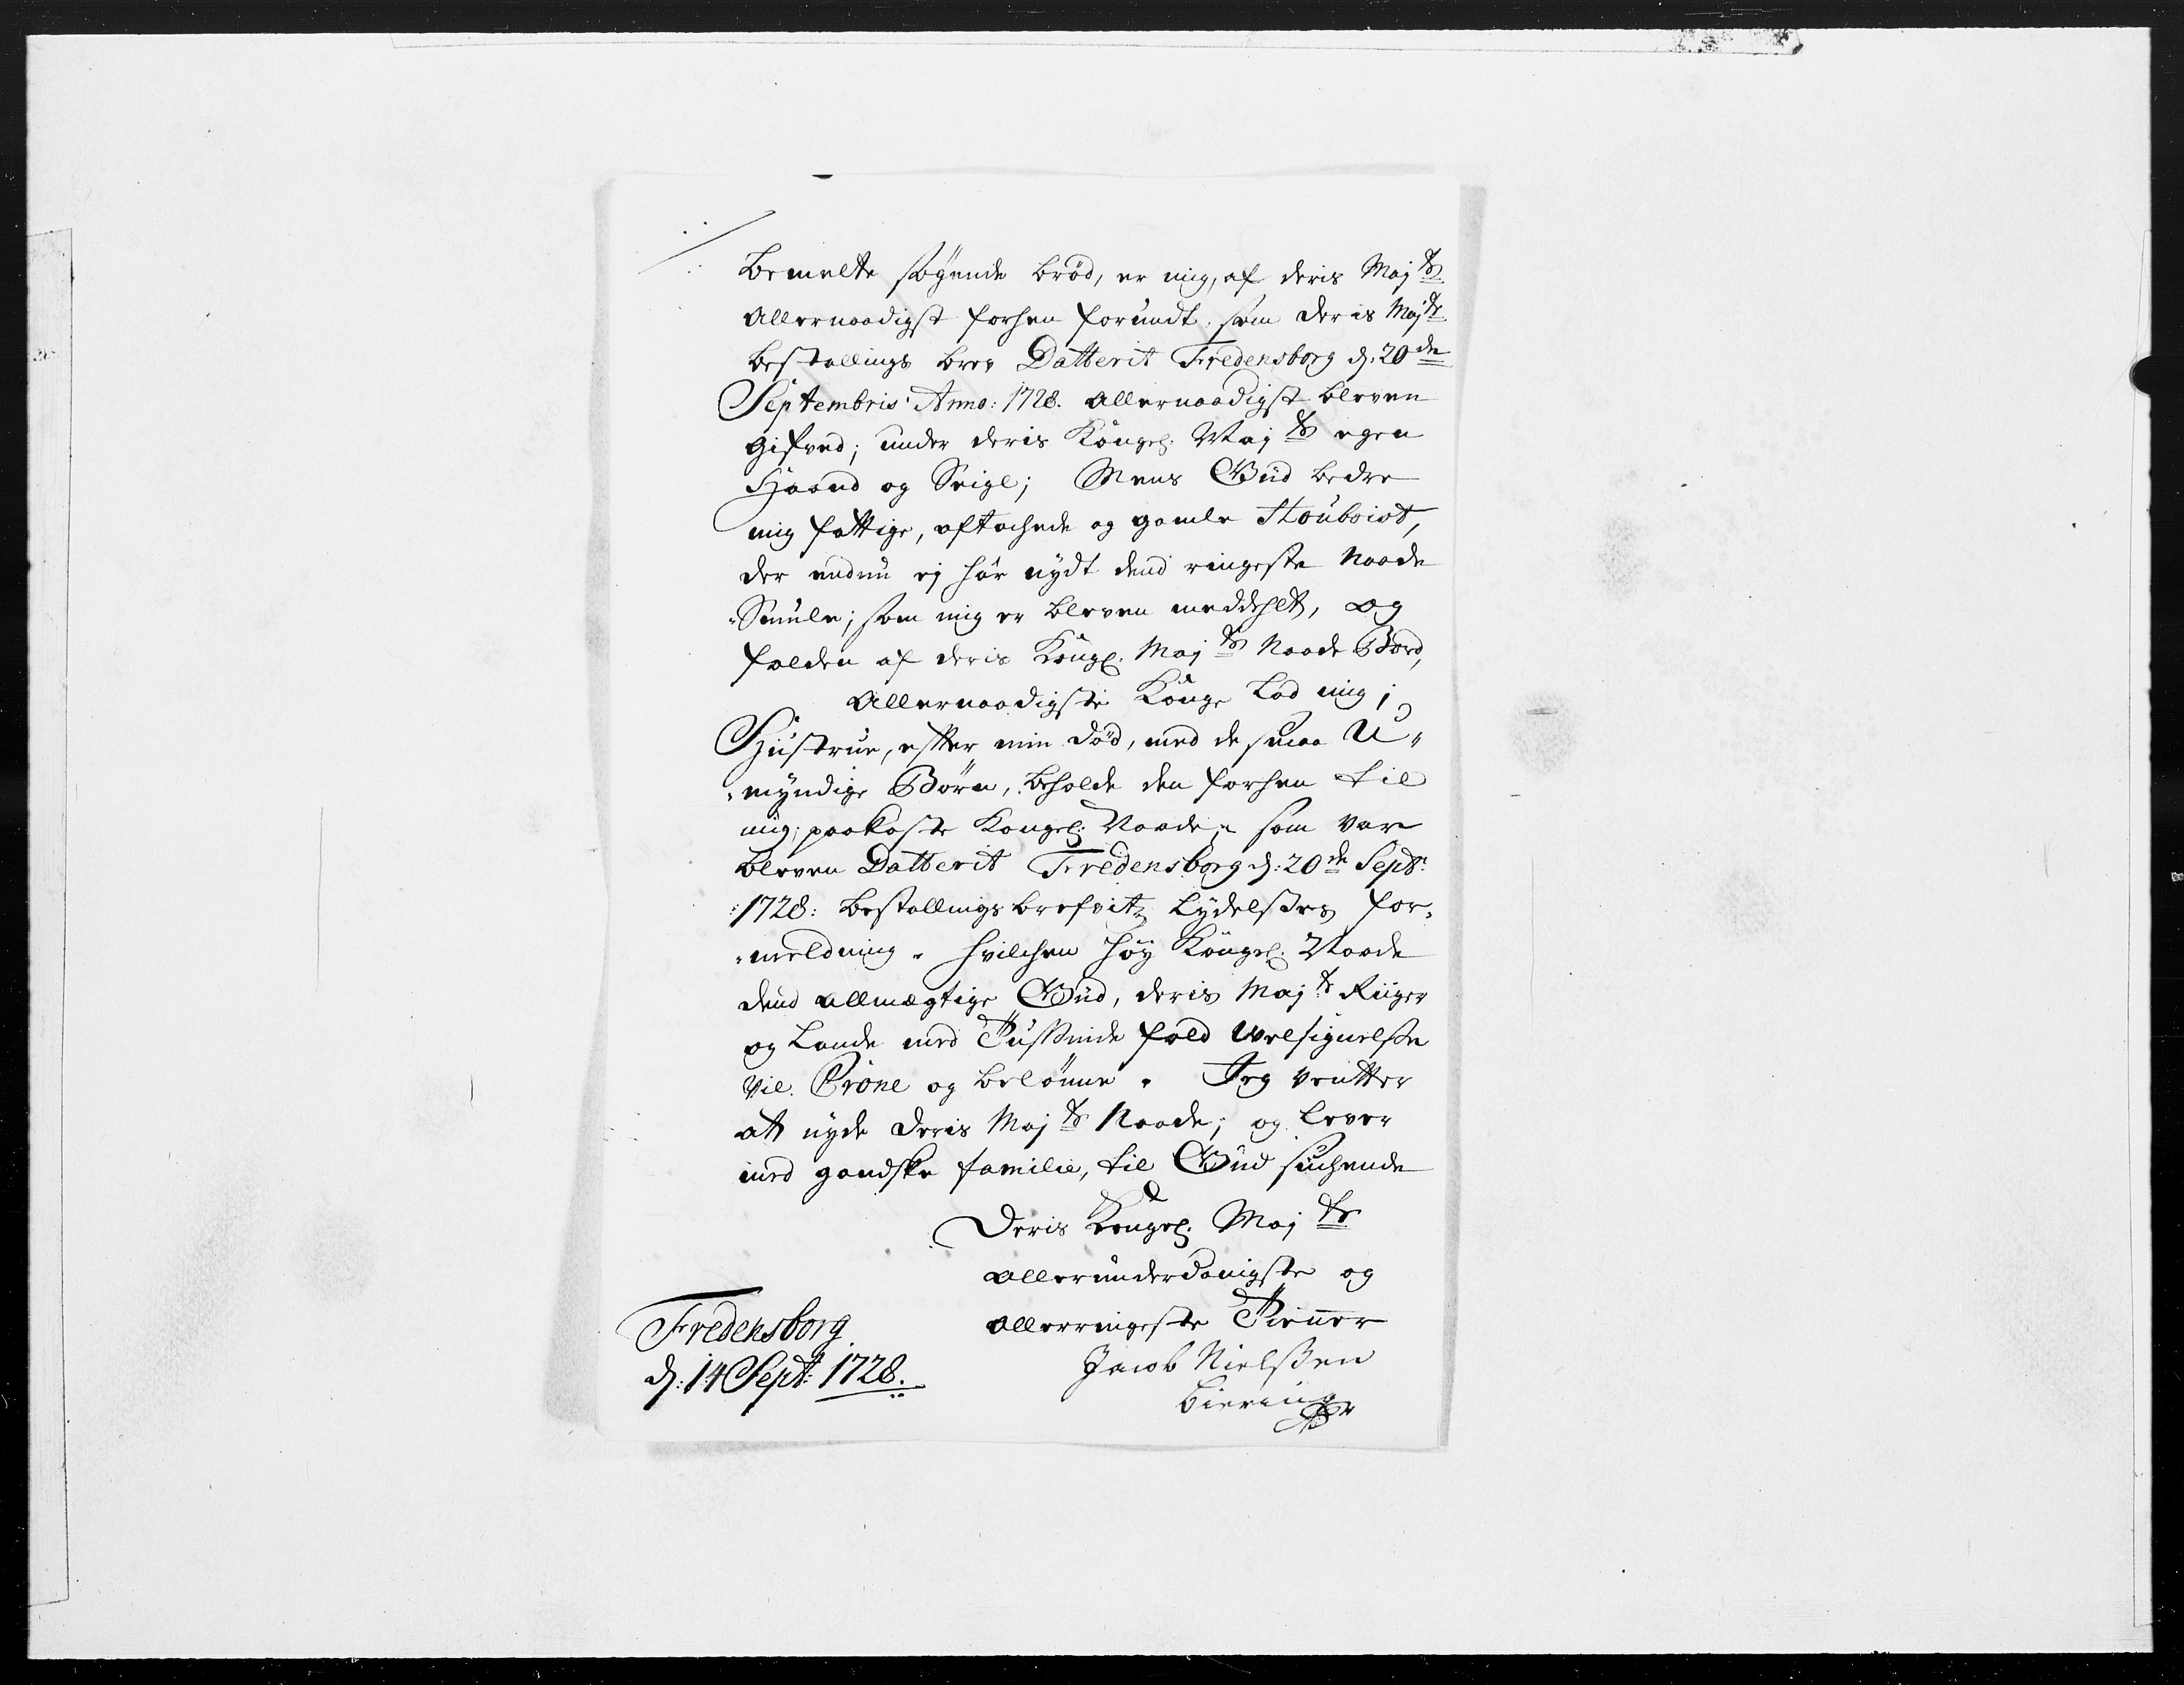 Bemelte søgende brød, er mig, af deris Maj:ts
Allernaadigst forhen forundt, som deris Majts
bestallings brev Datterit Fredensborg d: 20de
Septembris Anno: 1728. allernaadigst bleven
gifved; under deris Kongel: Maj:ts egen
Haand og Seigl; Mens Gud bedre
mig fattige, aftachede og gamle Houboist,
der endnu ej har nydt dend ringeste Naade
"Smule; som mig er bleven meddehlt, og
falden af deris Kongl: Maj:ts Naade Bord,
Allernaadigste Konge Lad mig j
Hustrue, efter min død, med de smaa U"
"myndige Børn, beholde den forhen til
mig, paakaste Kongel: Naade, som var
bleven Datterit Fredensborg d: 20de Sept:
1728: bestallings brefvitz Lydelsses for"
"meldning. hvilchen høy Kongel: Naade
dend allmægtige Gud, deris Maj:ts Riiger
og Lande med Tussinde fold Velsignelsse
vil Crone og belønne. Jeg venter
at nyde deris Maj:ts Naade; og lever
med gandske familie, til Gud suchende
Deris Kongel: Maj:ts
allerunderdanigste og
allerringeste Tienner
Jacob Nielssen
Biering
Fredensborg
d: 14 Sept: 1728.